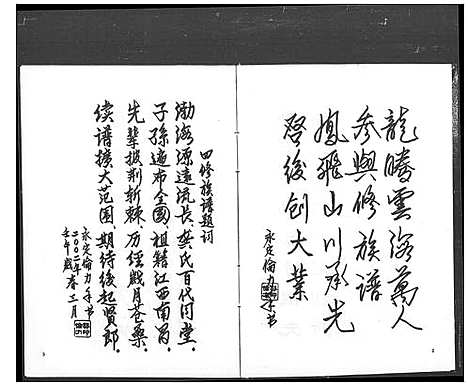 龍騰雲海萬人
參與修族譜
鳳飛山川承先
啓後创大業
永定倫力手书
四修族譜题词
渤海源遠流長、龚氏百代同堂、
子孫遍布全國、祖籍江西南昌、
先辈披荆斩棘、历经歲月苍桑、
续谱擴大范围、期待後起賢郎、
永定倫力手书
二00二年春三月
壬午歲
2
3